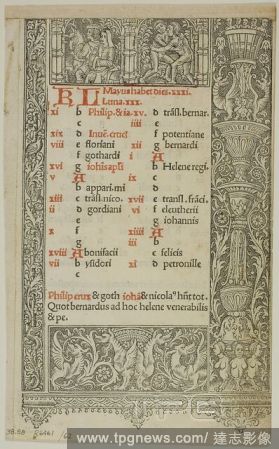 KL Mayus habet dies. xxxi.
Luna. xxx.
xi b Philip. & ia. xv. d trāsl. bernar.
c iiii e
xix d Inuē. crucis f potentiane
viii e floriani xii g bernardi
f gothardi i A
xvi g iohīs apli b Helene regi.
v A ix c
b appari. mi d
xiii c trāsl. nico. xvii e transl. frāci.
ii d gordiani vi f eleutherii
e g iohannis
x f xiiii A
g iii b
xviii A bonifacii c felicis
vii b ysidori xi d petronille
c
Philip crux & goth iohā & nicolaº hūt tot.
Quot bernardus ad hoc helene venerabilis
& pe.
38.58
www.tpgnews.com/ 達志影像